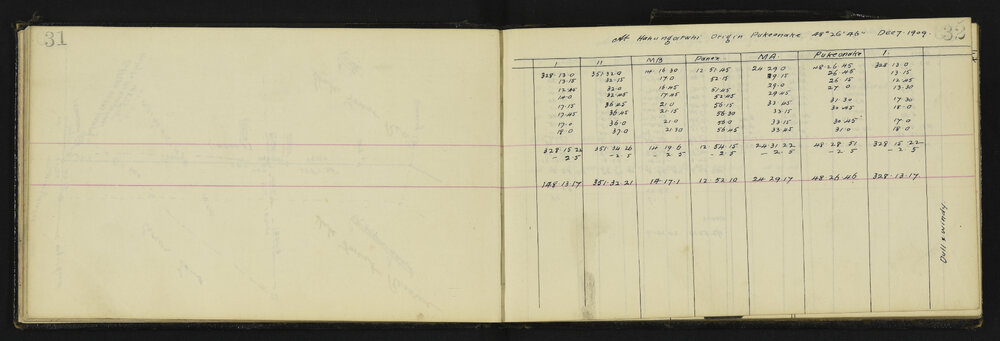 31
32
At Hakungarahi Origin Pukeonake 48° 26' 46" Dec 7 1909.
I II MB Paner MA Pukeonake I.
328.13.0 351.32.0 14.16.30 12.51.45 24.29.0 48.26.45 328.13.0
13.15 32.15 17.0 52.15 29.15 26.45 13.15
12.45 32.0 16.45 51.45 29.0 26.15 12.45
14.0 32.45 17.45 52.45 29.45 27.0 13.30
17.15 36.45 21.0 56.15 33.45 31.30 17.30
17.45 36.45 21.15 56.30 33.15 30.45 18.0
17.0 36.0 21.0 56.0 33.15 30.45 17.0
18.0 37.0 21.30 56.45 33.45 31.0 18.0
328.15.22 351.34.26 14.19.6 12.54.15 24.31.22 48.28.51 328.15.22
-2.5 -2.5 -2.5 -2.5 -2.5 -2.5 -2.5
148.13.17 351.32.21 14.17.1 12.52.10 24.29.17 48.26.46 328.13.17
Dull & windy